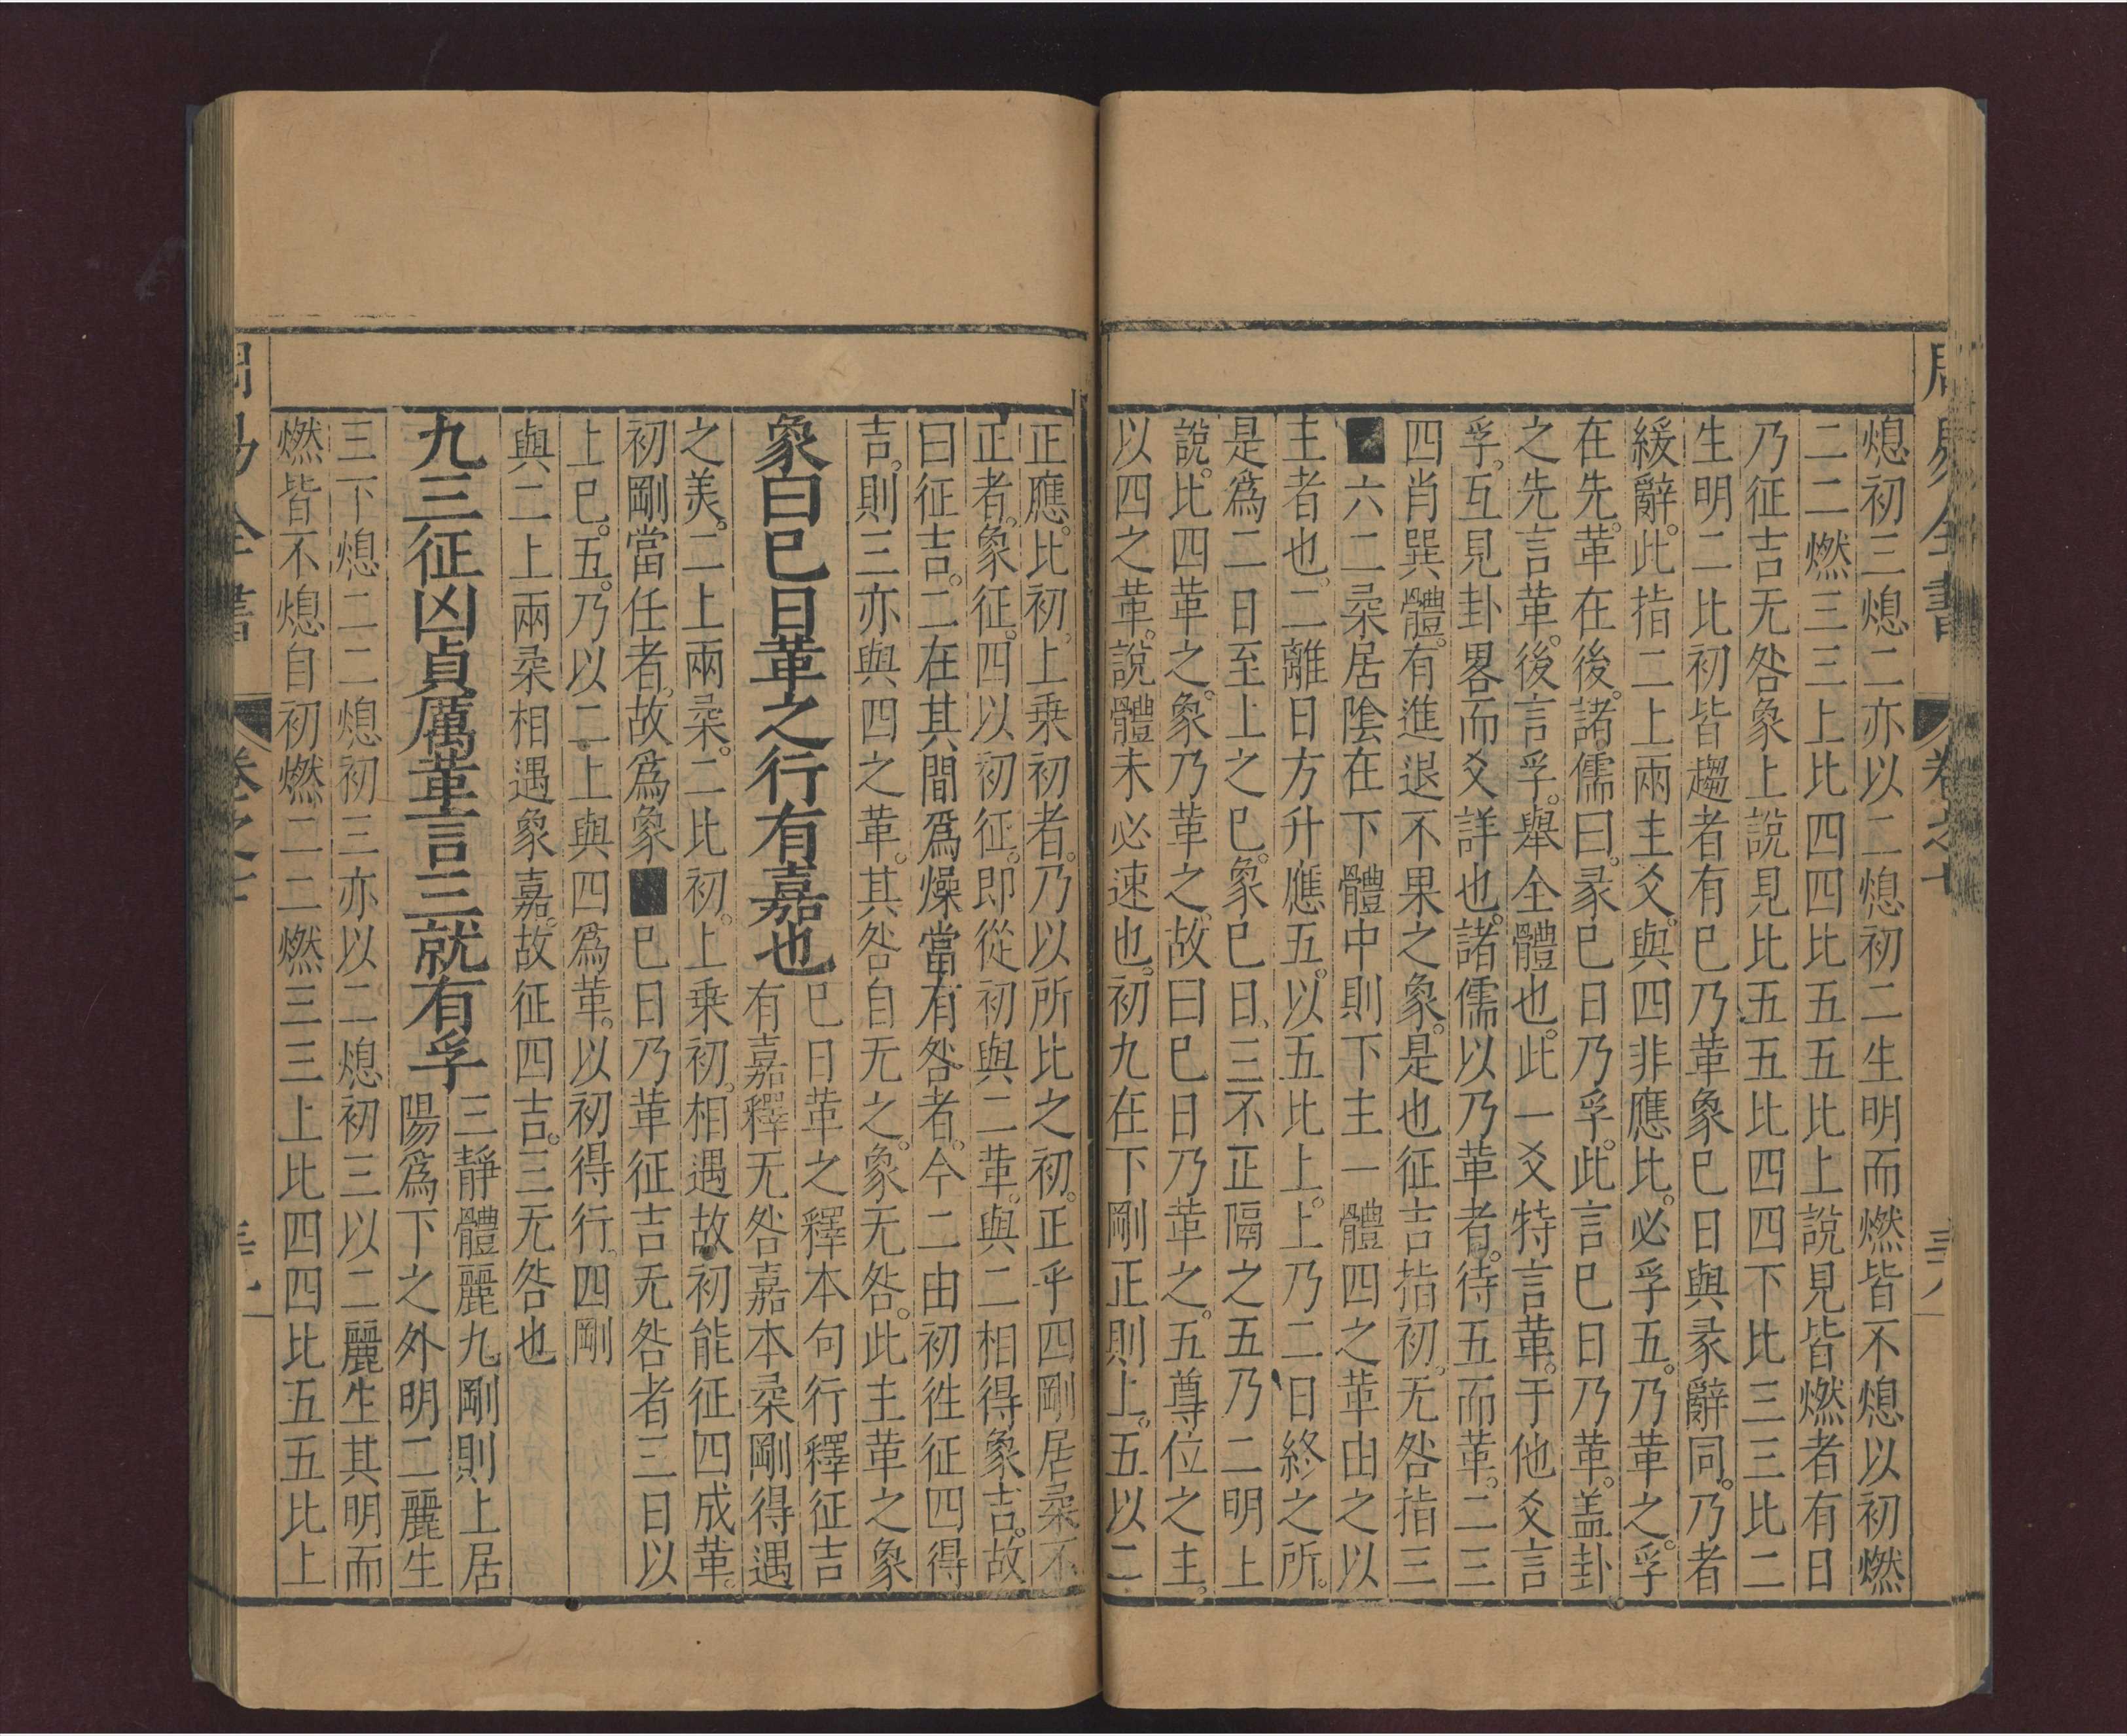 熄初三熄二亦以二熄初二生明而燃皆不熄以初燃
二二燃三三上比四四比五五比上說見皆燃者有日
乃征吉无咎象上說見比五五比四四下比三三比二
生明二比初皆趨者有巳乃革象巳日與彖辭同。乃者
緩辭。此指二上兩主爻。與四非應比。必孚五。乃革之。孚
在先。革在後。諸儒曰。彖巳日乃孚。此言巳日乃革。盖卦
之先言革。後言孚。舉全體也。此一爻特言革。于他爻言
孚。互見卦畧而爻詳也。諸儒以乃革者。待五而革。二三
四肖巽體。有進退不果之象。是也征吉指初。无咎指三
■六二柔居陰在下體中則下主一體四之革由之以
主者也。二離日方升應五。以五比上。上乃二日終之所。
是爲二日至上之巳。象巳日、三不正隔之五乃二明上
說。比四革之。象乃革之。故曰巳日乃革之。五尊位之主。
以四之革。說體未必速也。初九在下剛正則上。五以二
正應。比初。上乘初者。乃以所比之初。正乎四剛居柔不
正者。象征。四以初征。即從初與二革。與二相得象吉。故
曰征吉。二在其間爲燥當有咎者。今二由初徃征四得
吉。則三亦與四之革。其咎自无之。象无咎。此主革之象
象曰巳日革之行有嘉也
巳日革之釋本句行釋征吉
有嘉釋无咎嘉本柔剛得遇
之美。二上兩柔。二比初。上乘初。相遇故初能征四成革。
初剛當任者。故爲象■巳日乃革征吉无咎者三日以
上巳。五。乃以二上與四爲革。以初得行。四剛
與二上兩柔相遇象嘉。故征四吉。三无咎也
九三征凶貞厲革言三就有孚
三靜體麗九剛則上居
陽爲下之外明二麗生
三下熄二二熄初三亦以二熄初三以二麗生其明而
燃皆不熄自初燃二二燃三三上比四四比五五比上